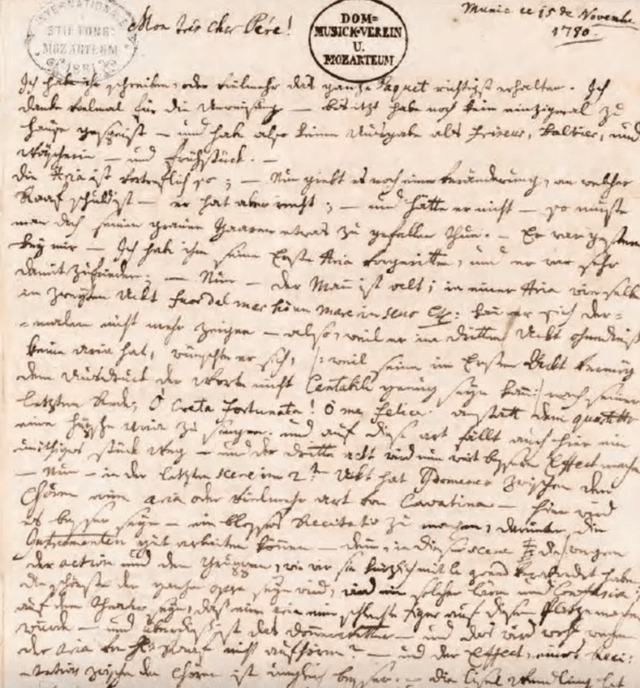 INTERNATIONALE
STIFTUNG
MOZARTEUM
1881
Mon trés cher Pére!
DOM-
MUSICK-VEREIN
U.
MOZARTEUM
Munic ce 15 de Novembre
1780.
Ich habe ihr schreiben, oder vielmehr das ganze Paquet richtig erhalten. Ich
danke vielmal für die Anweisung — bis itzt habe noch kein einzigmal zu
hause gespeist — und hab also keine Ausgabe als friseur, balbier, und
Wäscherin — und frühstück. —
die Aria ist vortreflich so; — Nun giebt es noch eine veränderung, an welcher
Raaf schuld ist — er hat aber recht; — und hätte er nicht — so müste
man doch seinen grauen Haaren etwas zu gefallen thun. — Er war gestern
bey mir — Ich hab ihm seine Erste Aria vorgeritten, und er war sehr
damit zufrieden; — Nun — der Mann ist alt; in einer Aria wie selbe
im zweyten Ackt fuor del mar hò un mare in seno etc: kan er sich der=
=malen nicht mehr zeigen — also, weil er im dritten Ackt ohnediess
keine aria hat, wünschte er sich, : weil seine im Ersten Ackt vermög
dem Ausdruck der Worte nicht Cantabile genug seyn kan : nach seiner
letzten Rede, O Creta fortunata! O me felice anstatt dem quartetto
eine hüpsche Aria zu singen. und auf diese art fällt auch hier ein
unöthiges stück weg — und der dritte Ackt wird nun weit bessern Effect machen
— Nun — in der letzten scene im 2:t Ackt hat Idomeneo zwischen den
Chören eine aria oder vielmehr art von Cavatina — hier wird
es besser seyn — ein blosses Recitativ zu machen, darunter die
Instrumenten gut arbeiten können — denn, in dieser scene die wegen
der action und den Gruppen, wie wir sie kürzlich mit le grand verabredet haben
die schönste der ganzen opera seyn wird, wird ein solcher lärm und Confusion
auf dem theater seyn, dass eine aria eine schlechte figur auf diesem Platze machen
würde — und überdiess ist das donnerwetter — und das wird wohl wegen
der aria von H: Raaf nicht aufhören? — und der Effect, eines Reci=
=tatives zwischen den Chören ist ungleich besser. — die lisel Wendling hat